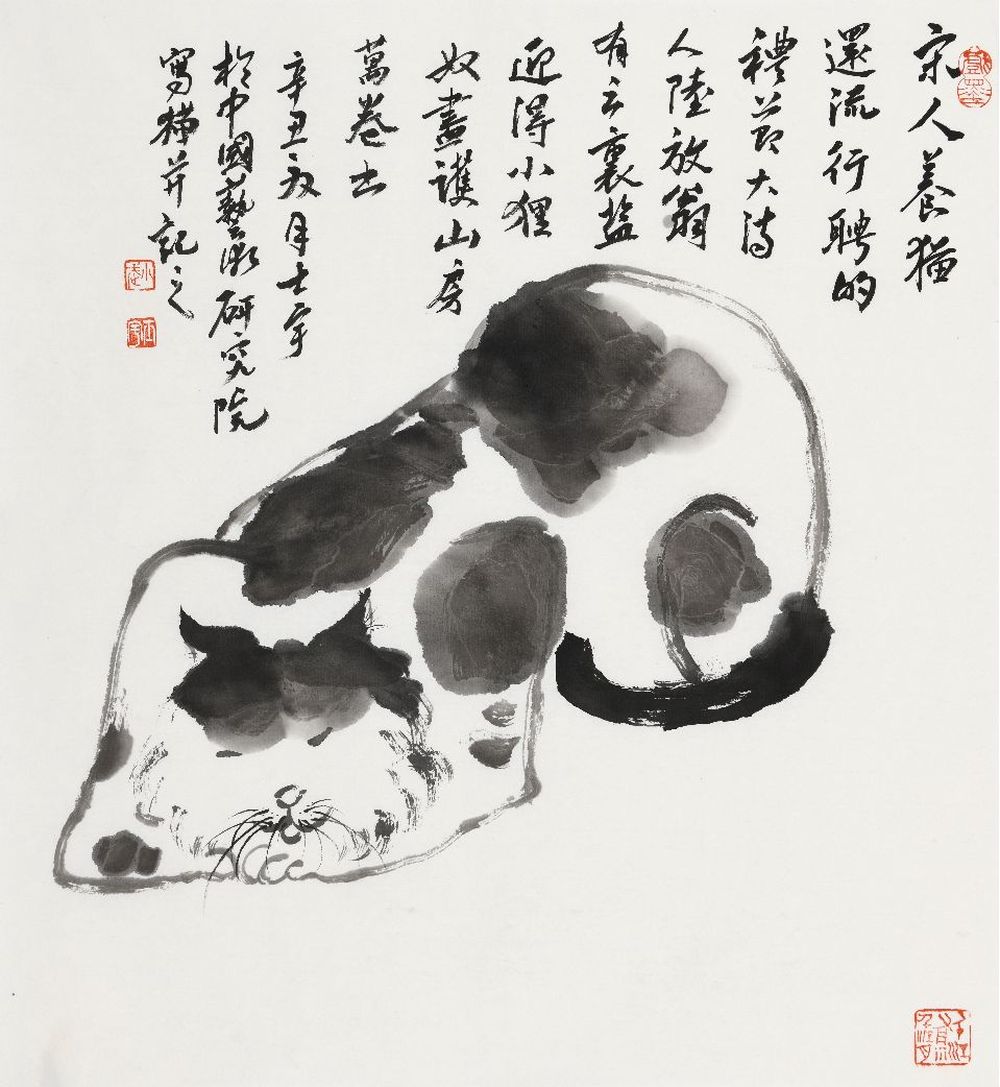 宋人養猫
還流行聘的
禮节大诗
人陸放翁
有云裹盐
迎得小狸
奴盡護山房
萬卷书
辛丑月士宇
於中國藝術研究院
寫猫并記之
戲墨